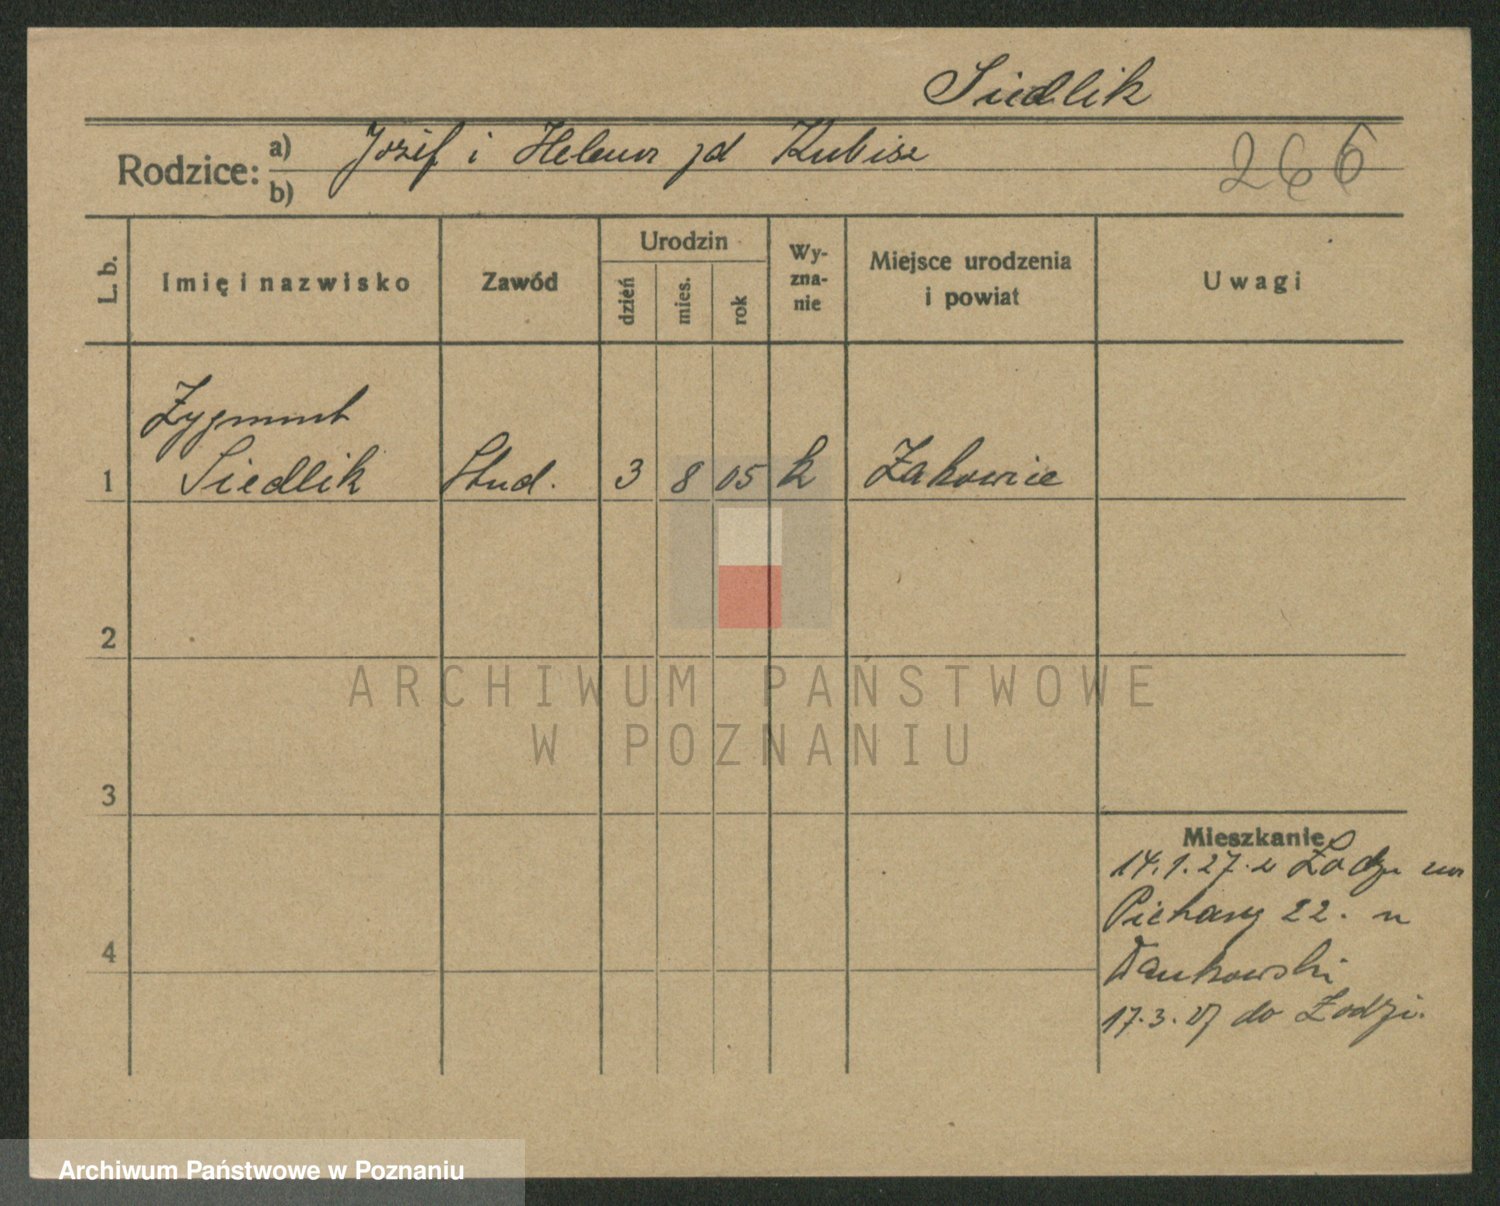 Siedlik
Rodzice: a) Józef i Helena zd Kubisz
b)
266
L. b.
Imię i nazwisko
Zawód
Urodzin
dzień
mies.
rok
Wy-
zna-
nie
Miejsce urodzenia
i powiat
Uwagi
Zygmunt
1 Siedlik Stud. 3 8 05 k Żakowice
2
ARCHIWUM PAŃSTWOWE
W POZNANIU
3
Mieszkanie
14.1.27. z Łodzi na
22. u
4
17.3.27 do Łodzi.
Archiwum Państwowe w Poznaniu